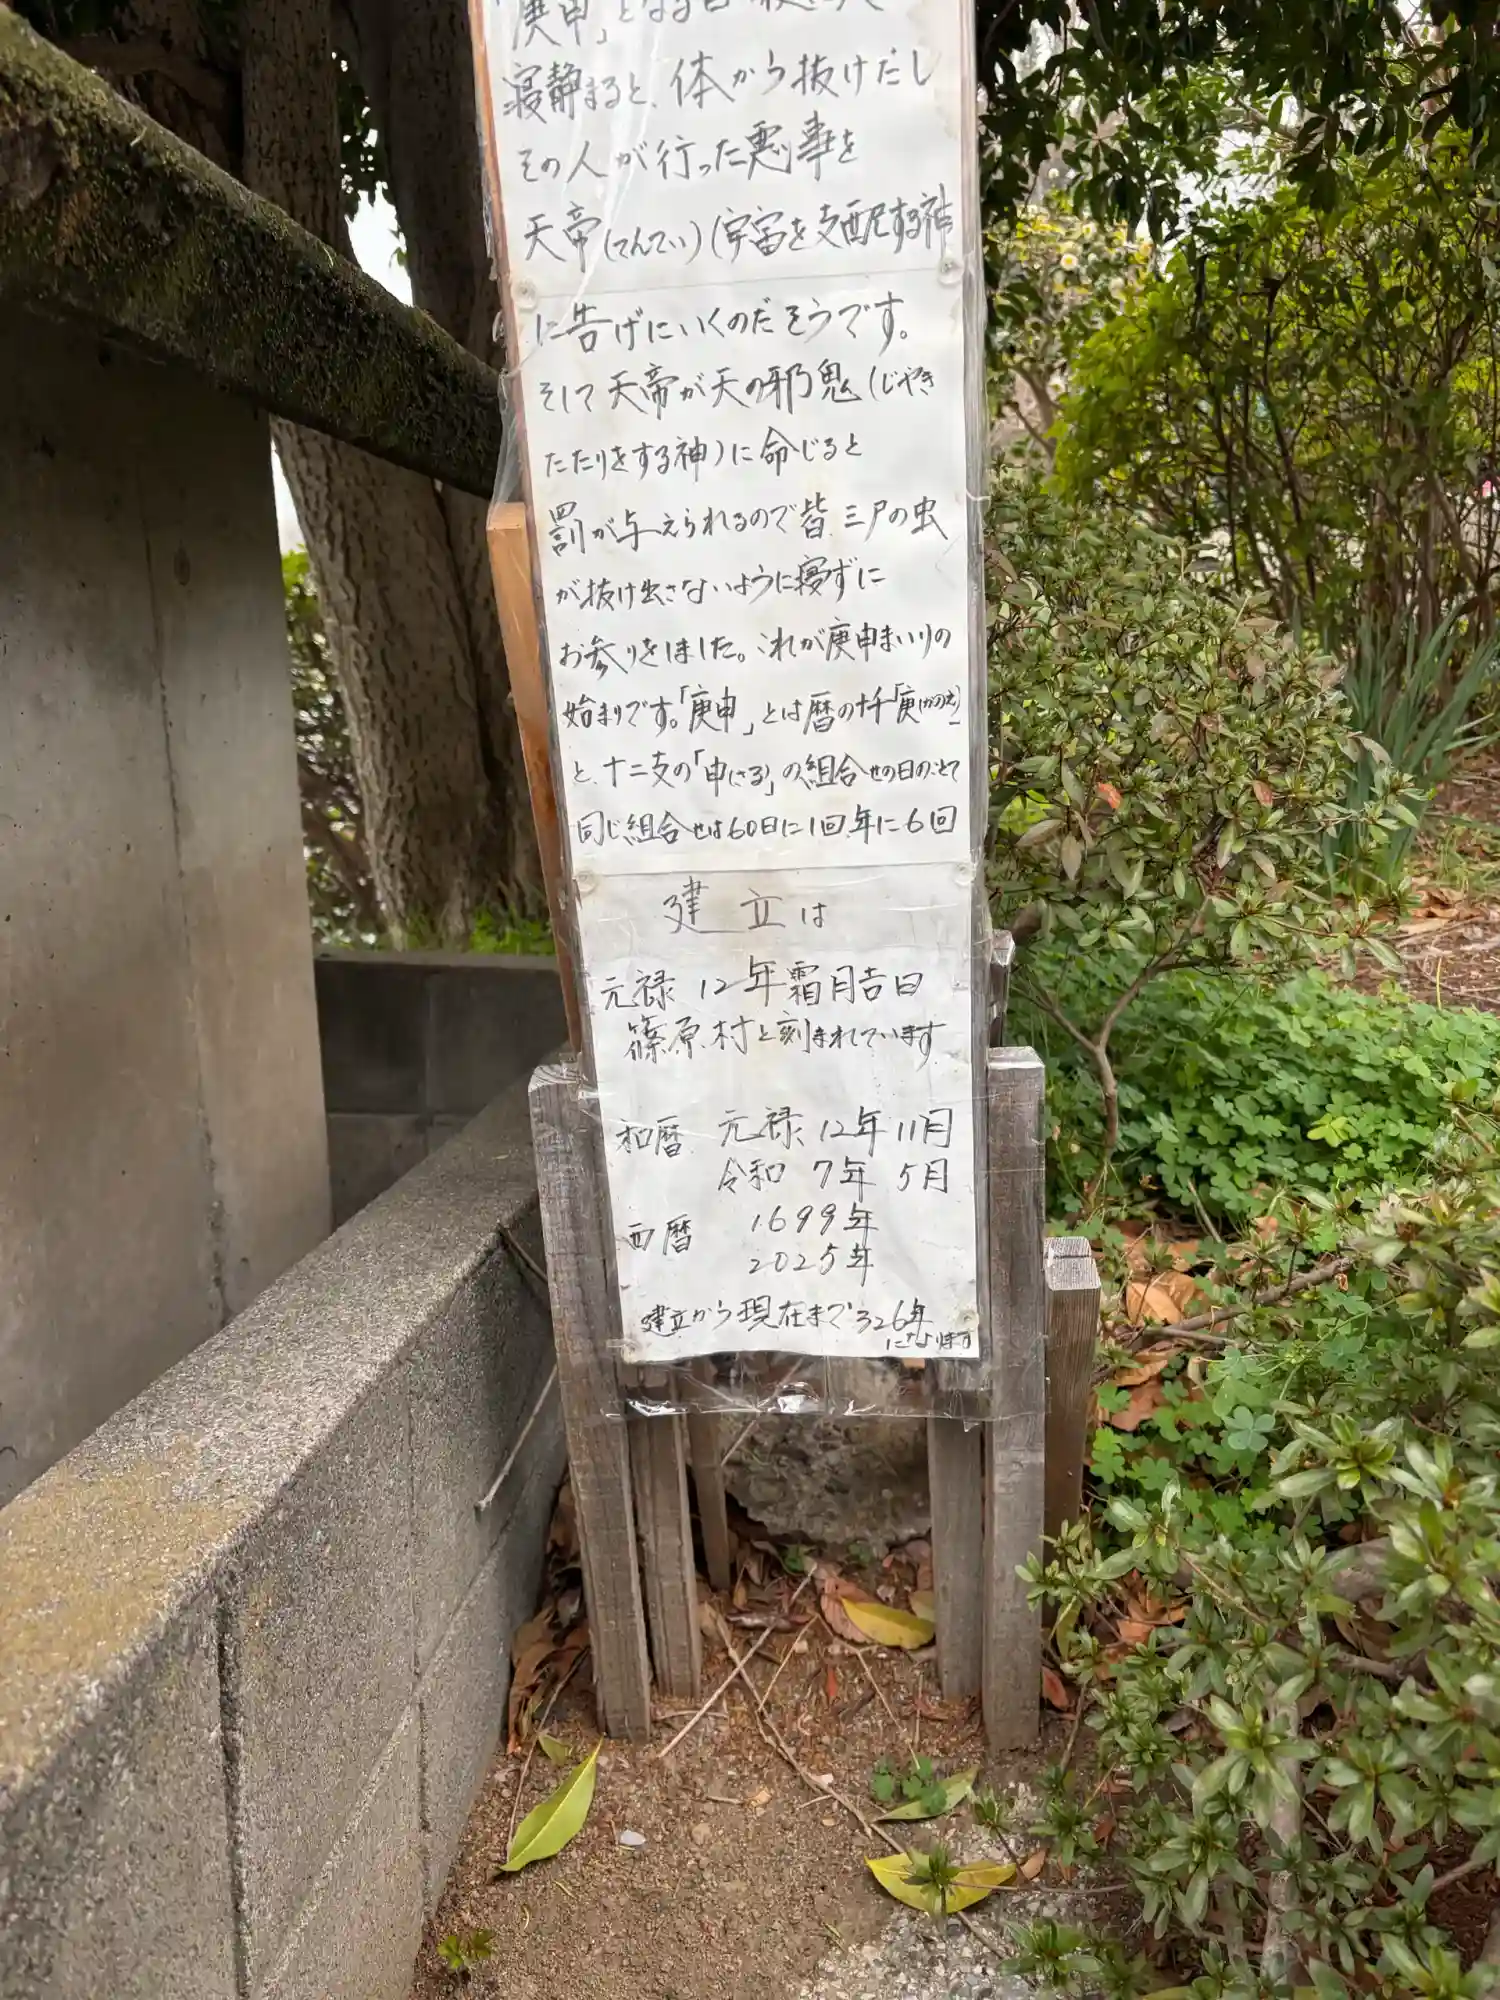 「庚申」となる日の夜に人々
寝静まると、体から抜けだし
その人が行った悪事を
天帝(てんてい)(宇宙を支配する神
に告げにいくのだそうです。
そして天帝が天の邪鬼(じゃき
たたりをする神)に命じると
罰が与えられるので皆、三尸の虫
が抜け出さないように寝ずに
お参りをしました。これが庚申まいりの
始まりです。「庚申」とは暦の十干「庚(かのえ)」
と、十二支の「申(さる)」の組合せの日のことで
同じ組合せは60日に1回、年に6回
建立は
元禄12年霜月吉日
篠原村と刻まれています
和暦 元禄12年11月
令和7年5月
西暦 1699年
2025年
建立から現在まで326年
になります